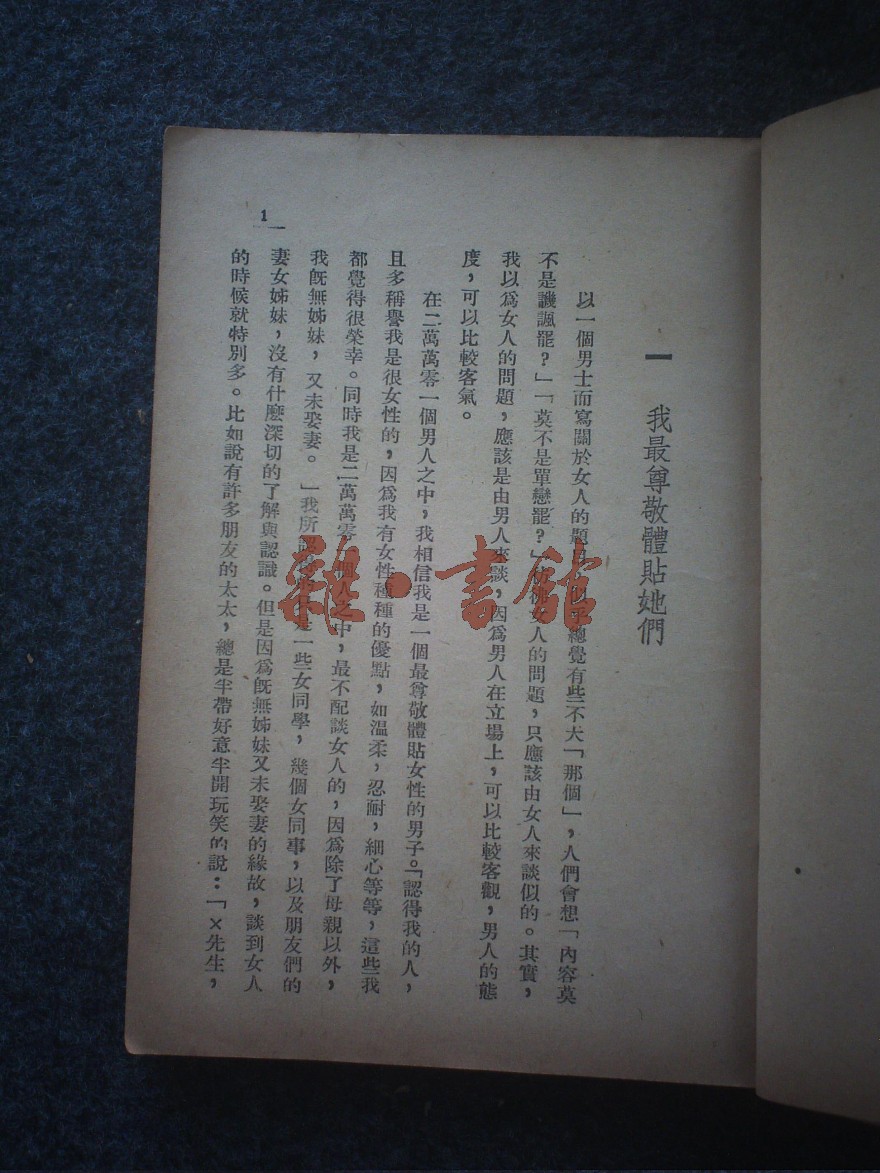 一 我最尊敬體貼她們
以一個男士而寫關於女人的題 乎總覺有些不大「那個」，人們會想「內容莫
不是譏諷罷？」「莫不是單戀罷？」 女人的問題，只應該由女人來談似的。其實，
我以爲女人的問題，應該是由男人來談，因爲男人在立場上，可以比較客觀，男人的態
度，可以比較客氣。
在二萬萬零一個男人之中，我相信我是一個最尊敬體貼女性的男子。「認得我的人，
且多稱譽我是很女性的，因爲我有女性種種的優點，如溫柔，忍耐，細心等等，這些我
都覺得很榮幸。同時我是二萬萬零 個人之中，最不配談女人的，因爲除了母親以外，
我既無姊妹，又未娶妻。」我所 是一些女同學，幾個女同事，以及朋友們的
妻女姊妹，沒有什麼深切的了解與認識。但是因爲既無姊妹又未娶妻的緣故，談到女人
的時候就特別多。比如說有許多朋友的太太，總是半帶好意半開玩笑的說：「×先生，
1
雜·書館